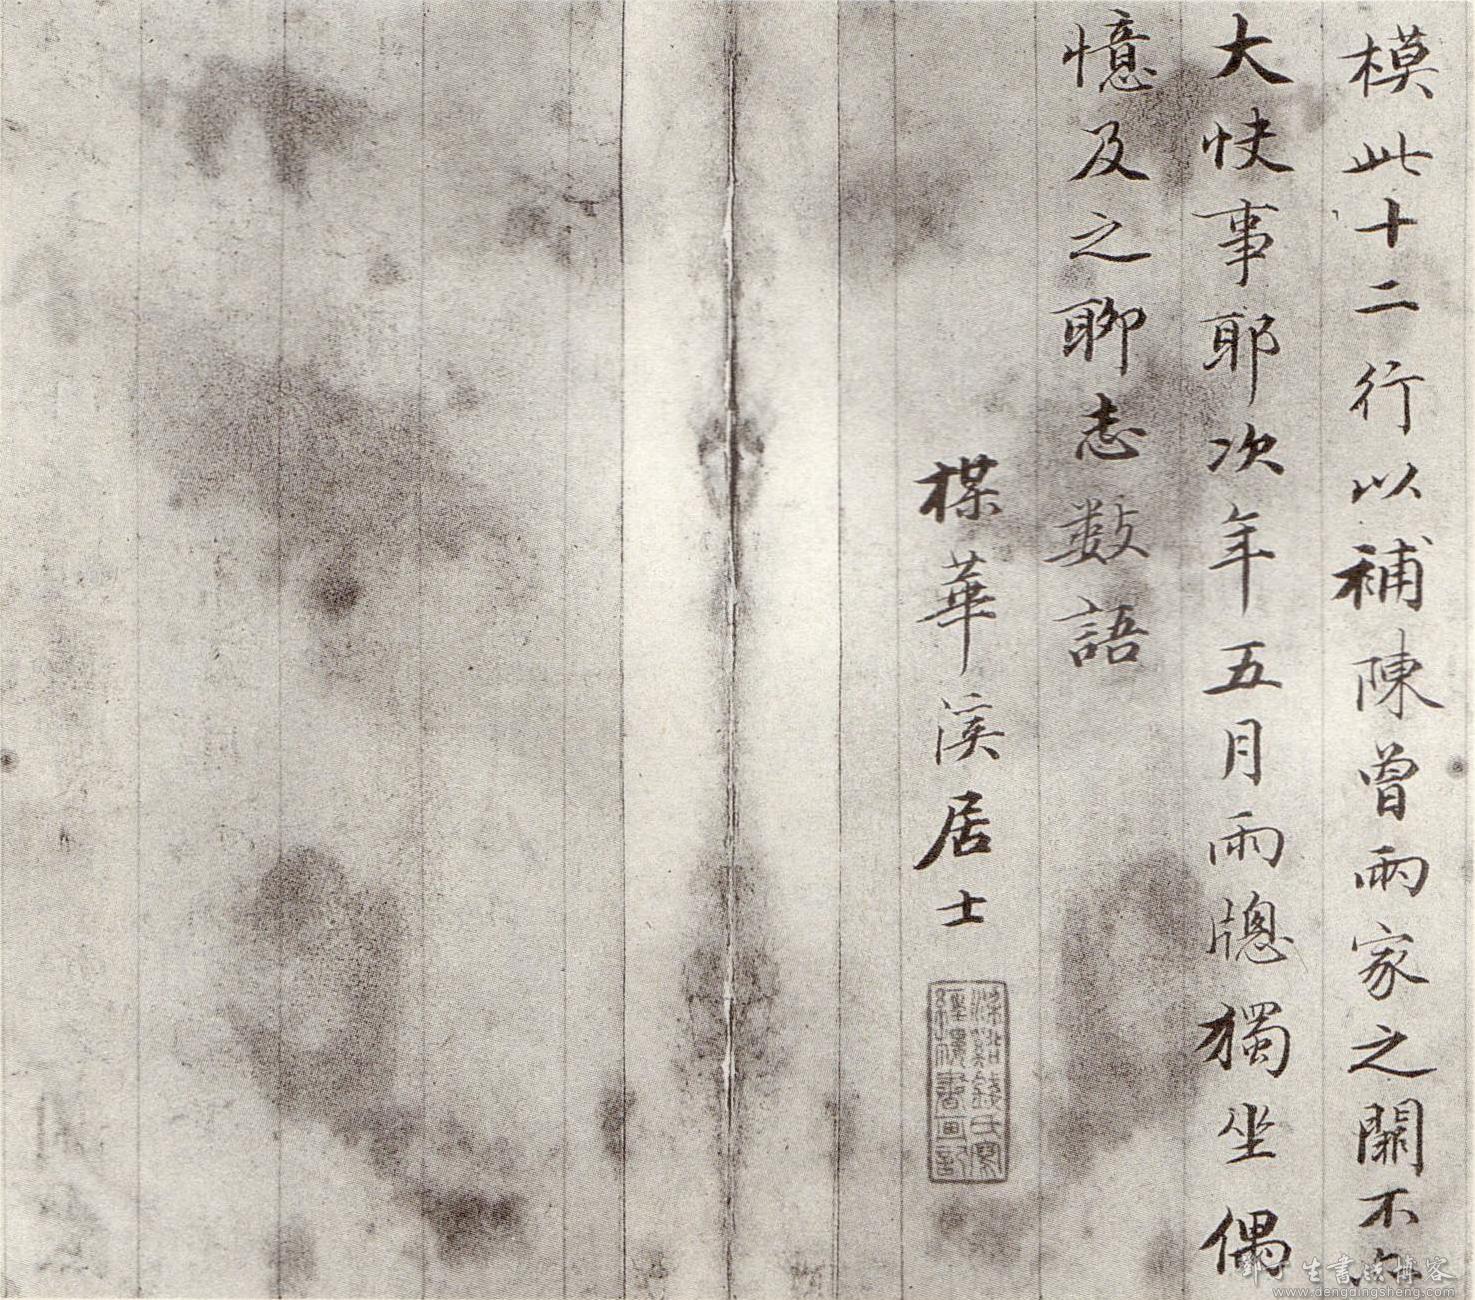 模此十二行以補陳曾兩家之闕不亦
大快事耶次年五月雨牕獨坐偶
憶及之聊志數語
楳華溪居士
梁谿錢氏寫
經樓書画記
丁生書法博客
www.dengdingsheng.com